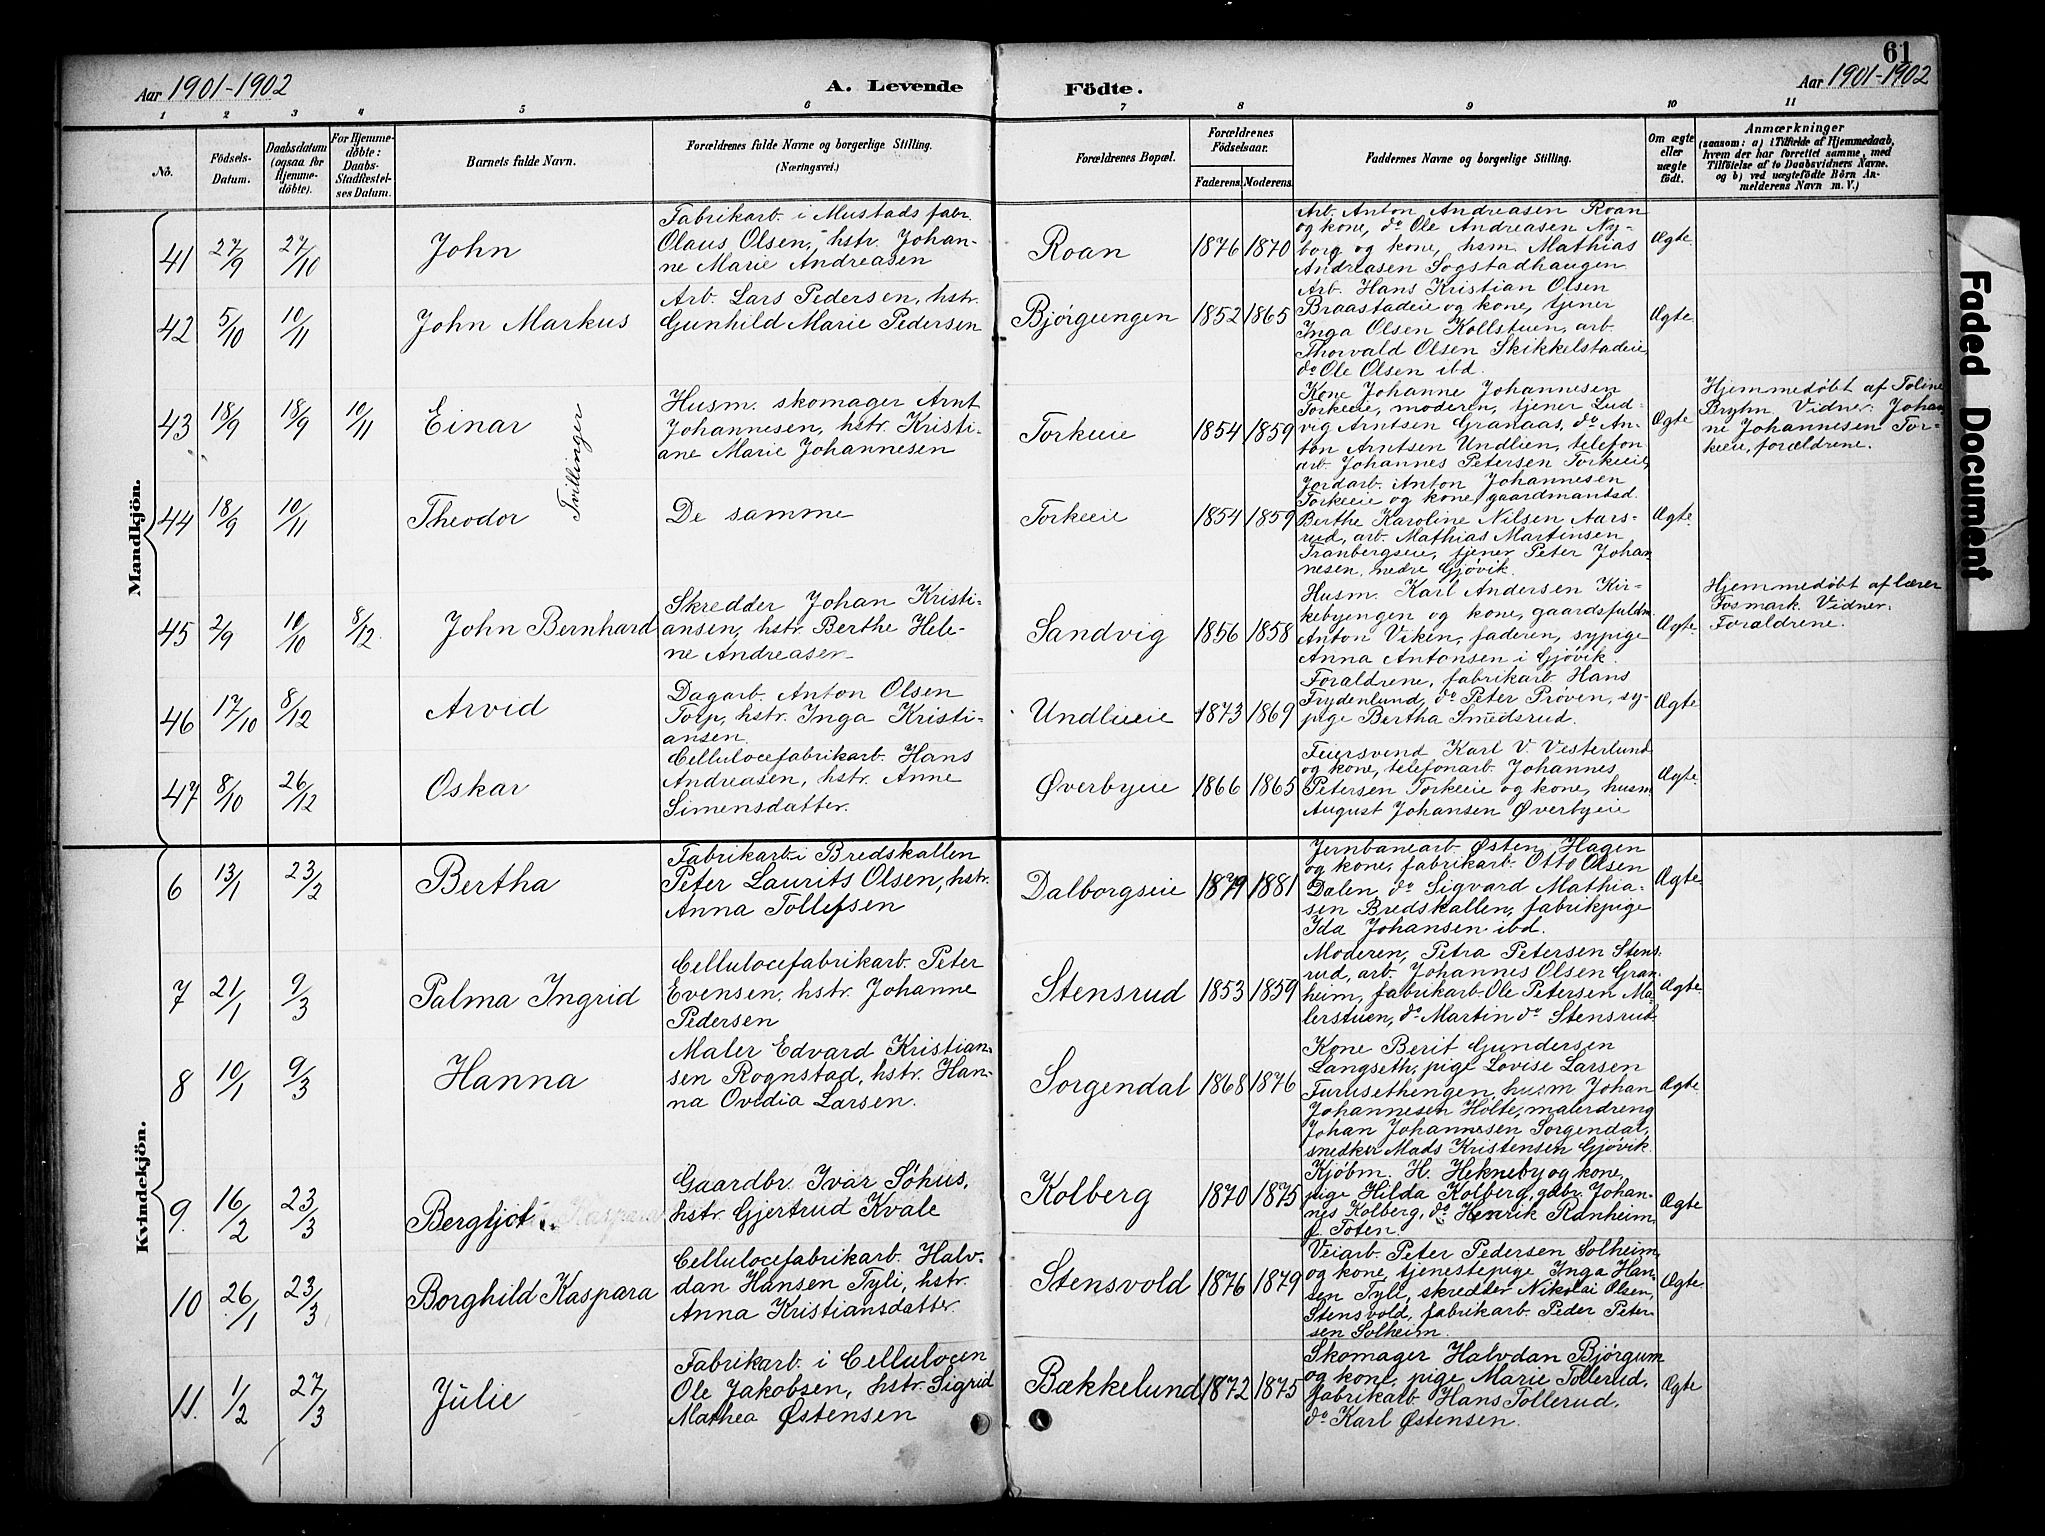 61
Aar 1901-1902
A. Levende
Födte.
Aar 1901-1902
1 2 3 4 5 6 7 8 9 10 11
No.
Födsels-Datum.
Daabsdatum (ogsaa for Hjemme-döbte).
For Hjemme-döbte: Daabs-Stadfæstel-ses Datum.
Barnets fulde Navn.
Forældrenes fulde Navne og borgerlige Stilling.
(Næringsvei.)
Forældrenes Bopæl.
Forældrenes Födselsaar.
Faderens. Moderens.
Faddernes Navne og borgerlige Stilling.
Om ægte eller uægte födt.
Anmærkninger
(saasom: a) i Tilfælde af Hjemmedaab,
hvem der har forrettet samme, med
Tilföielse af to Daabsvidners Navne.
og b) ved uægtefödte Börn An-
melderens Navn m. V.)
Mandkjön.
41 27/9 27/10 John
Fabrikarb. i Mustads fabr.
Olaus Olsen, hstr. Johan-
ne Marie Andreasen
Roan 1876 1870
Arb. Anton Andreasen Roan
og kone, do Ole Andreasen Ny-
borg og kone, hsm. Mathias
Andreasen Sogstadhaugen
Ægte.
42 5/10 10/11 John Markus
Arb. Lars Pedersen, hstr.
Gunhild Marie Pedersen
Bjørgungen 1852 1865
Arb. Hans Kristian Olsen
Braastadeie og kone, tjener
Inga Olsen Kollstuen, arb.
Thorvald Olsen Skikkelstadeie,
do Ole Olsen ibd.
Ægte.
43 18/9 18/9 10/11 Einar
Tvillinger
Husm. skomager Arnt
Johannesen, hstr. Kristi-
ane Marie Johannesen
Torkeeie 1854 1859
Kone Johanne Johannesen
Torkeeie, moderen, tjener Lud-
vig Arntsen Granaas, do An-
ton Arntsen Undlien, telefon
arb. Johannes Petersen Torkeeie,
Ægte
Hjemmedøbt af Toline
Bryhn Vidner: Johan
ne Johannesen Tor-
keeie, forældrene.
44 18/9 10/11 Theodor
De samme
Torkeeie 1854 1859
Jordarb. Anton Johannesen
Torkeeie og kone, gaardmandsd.
Berthe Karoline Nilsen Aars-
rud, arb. Mathias Martinsen
Tranbergseie, tjener Peter Johan
nesen, nedre Gjøvik.
Ægte.
45 2/9 10/10 8/12 John Bernhard
Skredder Johan Kristi-
ansen, hstr. Berthe Hele-
ne Andreasen
Sandvig 1856 1858
Husm. Karl Andersen Kir-
kebyengen og kone, gaardsfuldm.
Anton Viken, faderen, sypige
Anna Antonsen i Gjøvik.
Ægte.
Hjemmedøbt af lærer
Fosmark. Vidner:
Forældrene.
46 17/10 8/12 Arvid
Dagarb. Anton Olsen
Torp, hstr. Inga Kristi-
ansen
Undlieeie 1873 1869
Foraldrene, fabrikarb. Hans
Frydenlund, do Peter Prøven, sy-
pige Bertha Smedsrud.
Ægte.
47 8/10 26/12 Oskar
Cellulocefabrikarb. Hans
Andreasen, hstr. Anne
Simensdatter.
Øverbyeie 1866 1865
Feiersvend Karl V. Vesterlund
og kone, telefonarb. Johannes
Petersen Torkeeie og kone, husm.
August Johansen Øverbyeie
Ægte.
Kvindekjön.
6 13/1 23/2 Bertha
Fabrikarb. i Bredskallen
Peter Laurits Olsen, hstr.
Anna Tollefsen
Dalborgseie 1879 1881
Jernbanearb. Østen Hagen
og kone, fabrikarb. Otto Olsen
Dalen, do Sigvard Mathia-
sen Bredskallen, fabrikpige
Ida Johansen ibd.
Ægte.
7 21/1 9/3 Palma Ingrid
Cellulocefabrikarb. Peter
Evensen, hstr. Johanne
Pedersen
Stensrud 1853 1859
Moderen, Petra Petersen Stens-
rud, arb. Johannes Olsen Gran-
heim, fabrikarb. Ole Petersen Ma-
lerstuen, do Martin do Stensrud.
Ægte.
8 10/1 9/3 Hanna
Maler Edvard Kristian-
sen Rognstad, hstr. Han-
na Ovidia Larsen.
Sorgendal 1868 1876
Kone Berit Gundersen
Langseth, pige Lovise Larsen
Furusethengen, husm Johan
Johannesen Holte, malerdreng
Johan Johannesen Sorgendal,
snedker Mads Kristensen Gjøvik.
Ægte.
9. 16/2 23/3 Bergljot
Gaardbr. Ivar Søhus,
hstr. Gjertrud Kvale
Kolberg 1870 1875
Kjøbm. H. Hekneby og kone,
pige Hilda Kolberg, gdbr. Johan-
nes Kolberg, do Henrik Ranheim,
f. Toten.
Ægte
10 26/1 23/3 Borghild Kaspara
Cellulocefabrikarb. Halv-
dan Hansen Tyli, hstr.
Anna Kristiansdatter.
Stensvold 1876 1879
Veiarb. Peter Pedersen Solheim
og kone, tjenestepige Inga Han-
sen Tyli, skredder Nikolai Olsen,
Stensvold, fabrikarb. Peder Peter-
sen Solheim.
Ægte.
11. 1/2 27/3 Julie
Fabrikarb. i Cellulocen
Ole Jakobsen, hstr. Sigrid
Mathea Østensen
Bækkelund 1872 1875
Skomager Halvdan Bjørgum
og kone, pige Marie Tollerud,
fabrikarb. Hans Tollerud,
do Karl Østensen.
Ægte
Faded Document